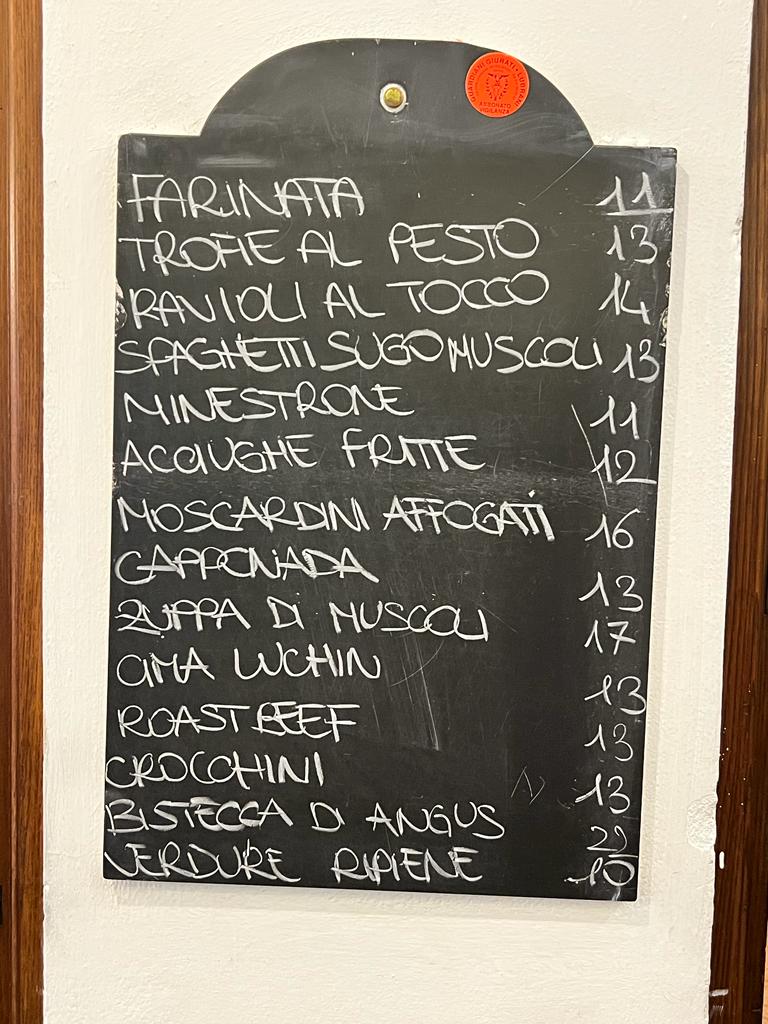 GUARDIANI GIURATI • LUBRANI
ABBONATO
VIGILANZA
FARINATA 11
TROFIE AL PESTO 13
RAVIOLI AL TOCCO 14
SPAGHETTI SUGO MUSCOLI 13
MINESTRONE 11
ACCIUGHE FRITTE 12
MOSCARDINI AFFOGATI 16
CAPPONADA 13
ZUPPA DI MUSCOLI 17
CIMA LUCHIN 13
ROAST BEEF 13
CROCCHINI 13
BISTECCA DI ANGUS
VERDURE RIPIENE 10